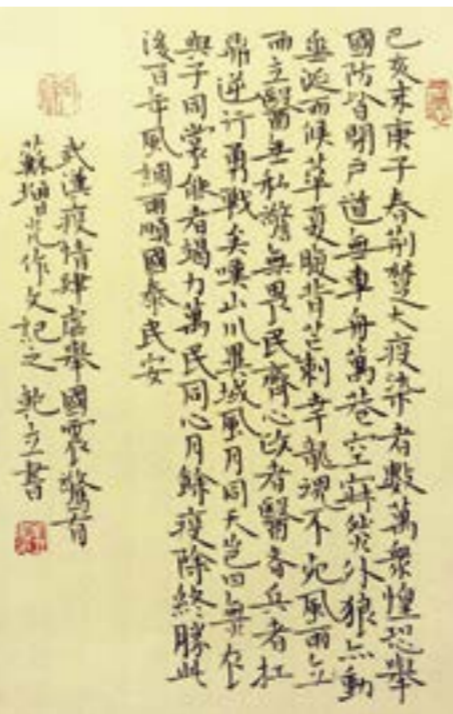 己亥末庚子春荆楚大疫染者數萬衆惶恐舉
國防皆閉戶道無車舟萬巷空寂然外狼亦動
垂涎而候華夏腹背芒刺幸龍魂不死風雨立
而立醫無私警無畏民齊心政者醫者兵者扛
鼎逆行勇戰矣嘆山川異域風月同天豈曰無衣
與子同裳能者竭力萬民同心月餘疫除終勝此
後百年風調雨順國泰民安
武漢疫情肆虐舉國震驚有
蘇增光作文記之 立書